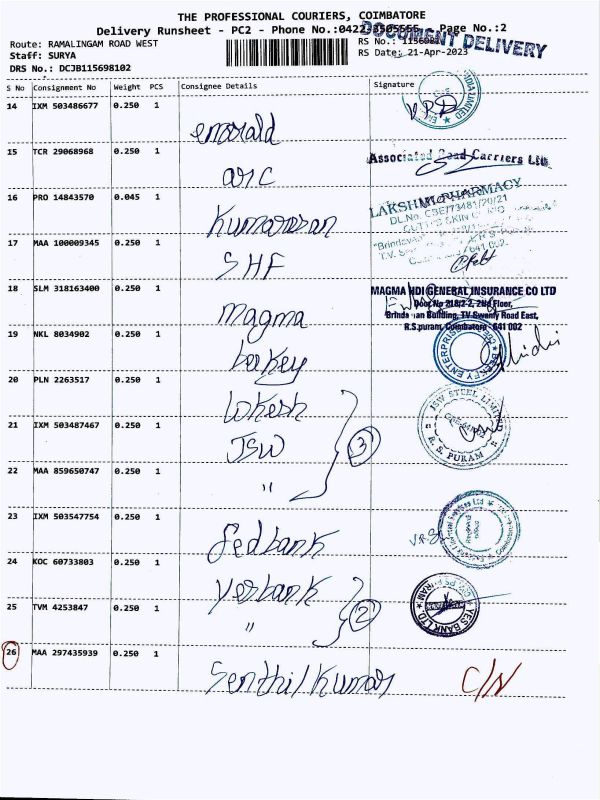 THE PROFESSIONAL COURIERS, COIMBATORE
Delivery Runsheet - PC2 - Phone No.:0422-3505555 Page No.:2
Route: RAMALINGAM ROAD WEST
Staff: SURYA
DRS No.: DCJB115698102
RS No.:
RS Date: 21-Apr-2023
DOCUMENT DELIVERY
S No Consignment No Weight PCS Consignee Details Signature
14 IXM 503486677 0.250 1
emerald
15 TCR 29068968 0.250 1
Associated Road Carriers Ltd
arc
16 PRO 14843570 0.045 1
LAKSHMI PHARMACY
DL.No. CBE/73481/20/21
Kumaresan
17 MAA 100009345 0.250 1
SHF
18 SLM 318163400 0.250 1
MAGMA HDI GENERAL INSURANCE CO LTD
Door No 218/2-2, 2Nd Floor,
Brindavan Building, TV Swamy Road East,
R.S.puram, Coimbatore - 641 002
Magma
19 NKL 8034902 0.250 1
20 PLN 2263517 0.250 1
Lokesh
JSW STEEL LIMITED
R. S. PURAM
21 IXM 503487467 0.250 1
JSW
3
22 MAA 859650747 0.250 1
"
23 IXM 503547754 0.250 1
fedbank
24 KOC 60733803 0.250 1
Yesbank
YES BANK LTD.
25 TVM 4253847 0.250 1
"
2
26 MAA 297435939 0.250 1
Senthil Kumar
C/N